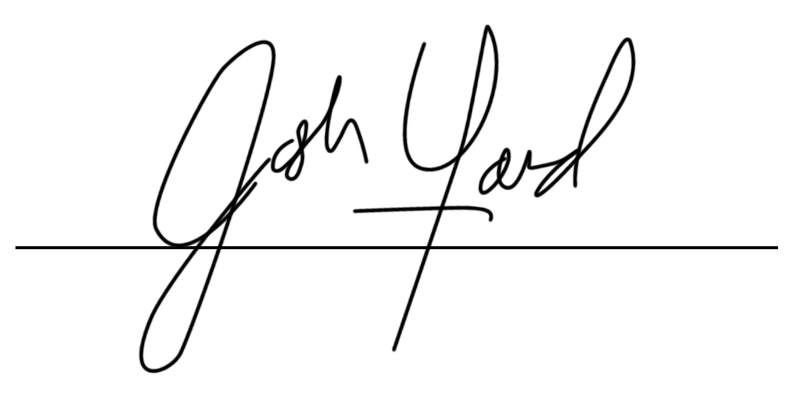 Josh Yard